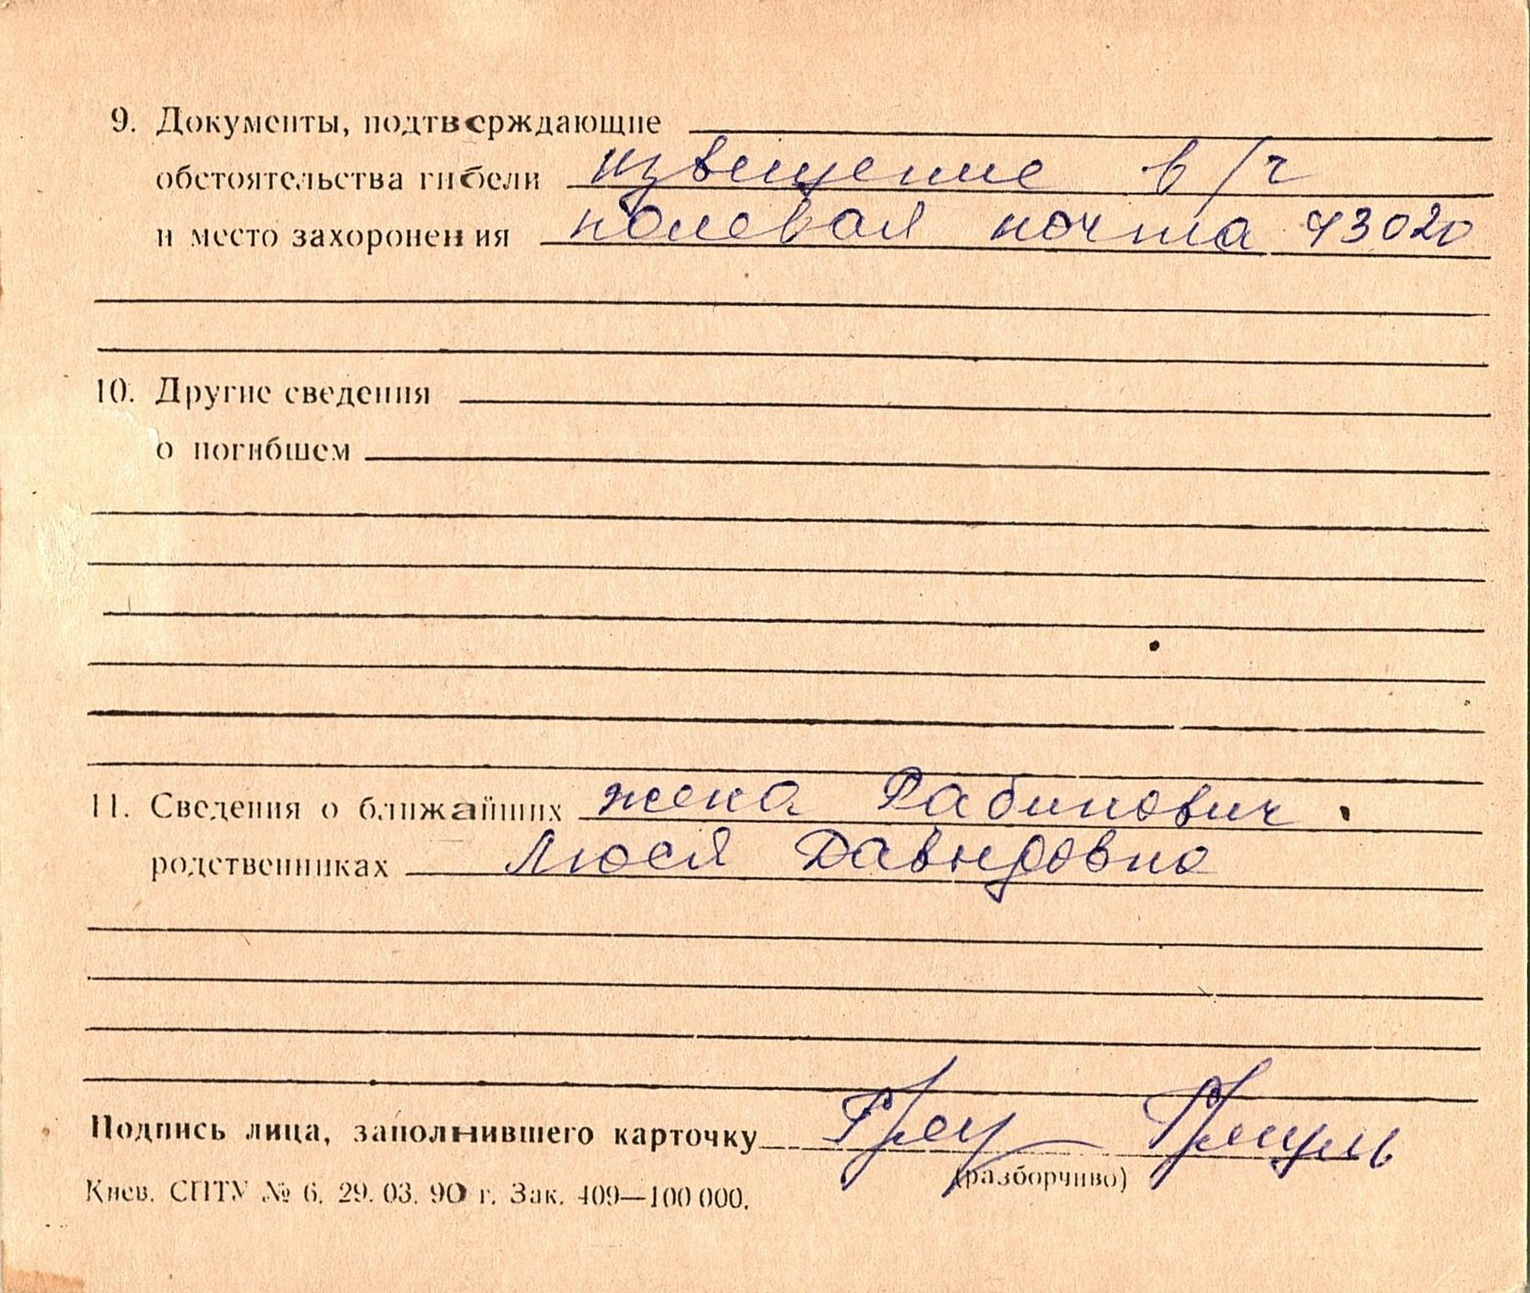 9. Документы, подтверждающие
обстоятельства гибели извещение в/ч
и место захоронения полевая почта 43020
10. Другие сведения
о погибшем
11. Сведения о ближайших жена Рабинович
родственниках Люся Давыдовна
Подпись лица, заполнившего карточку
(разборчиво)
Киев. СПТУ № 6. 29. 03. 90 г. Зак. 409—100 000.